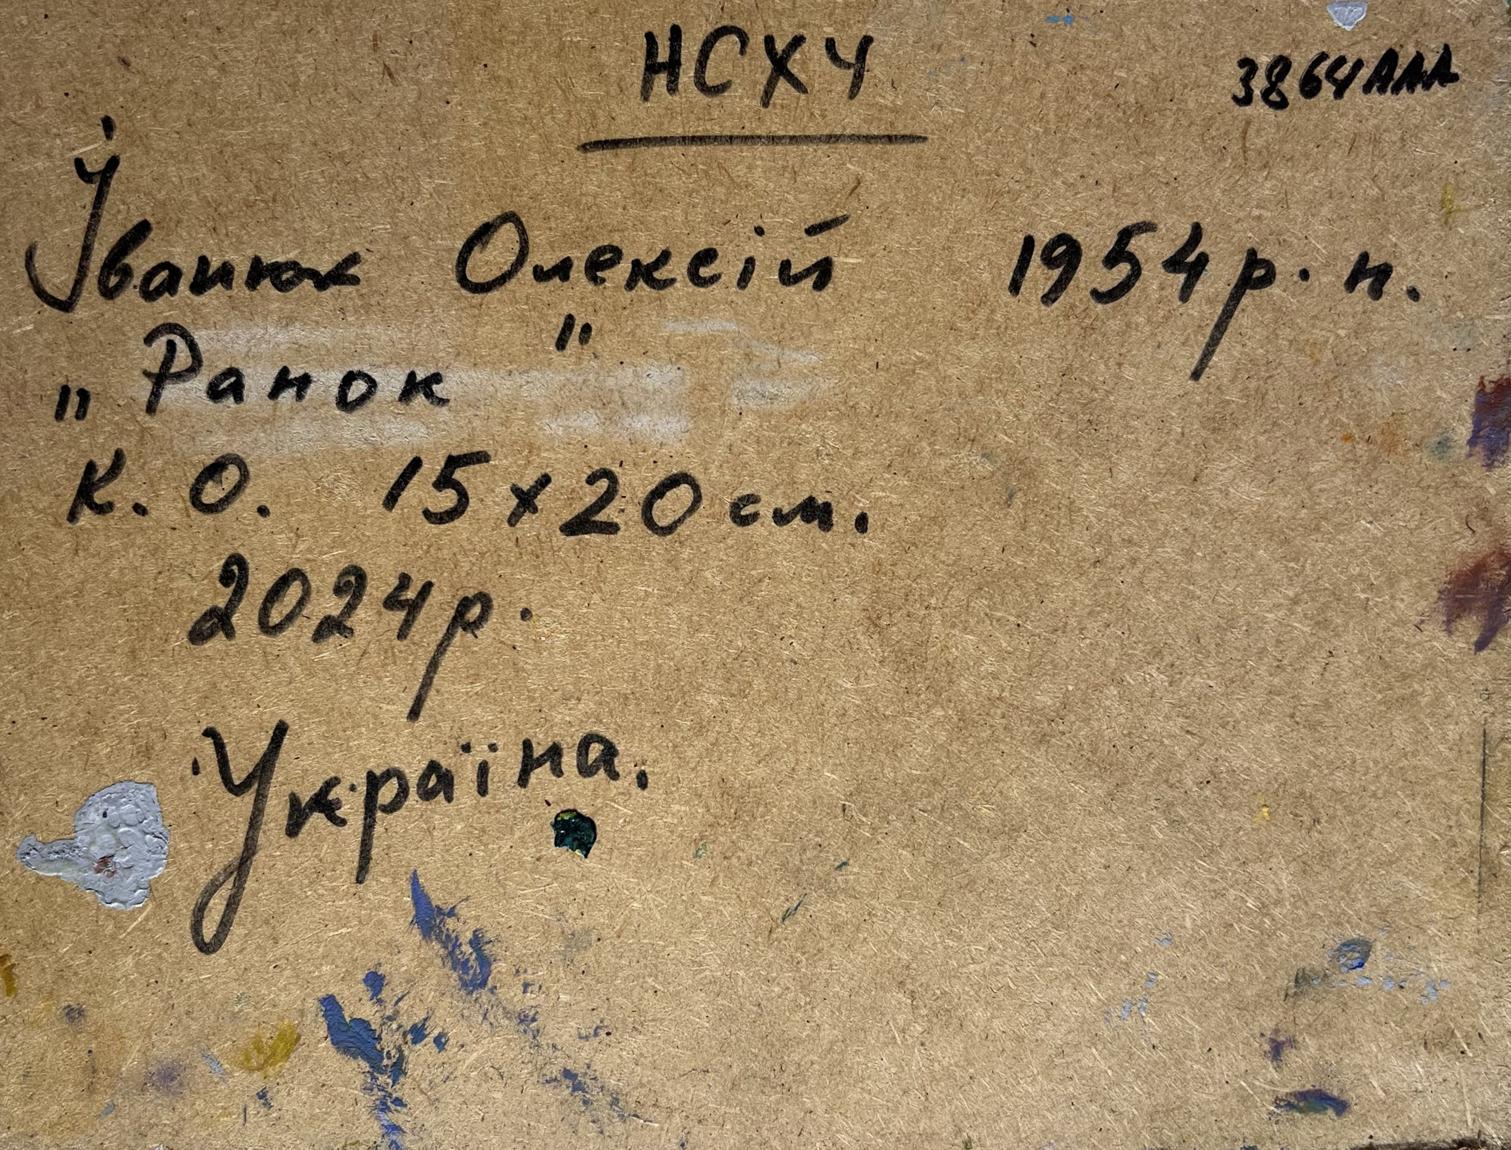 НСХУ
3864ААА
Іванюк Олексій 1954 р. н.
„Ранок"
К. О. 15 х 20 см.
2024 р.
Україна.